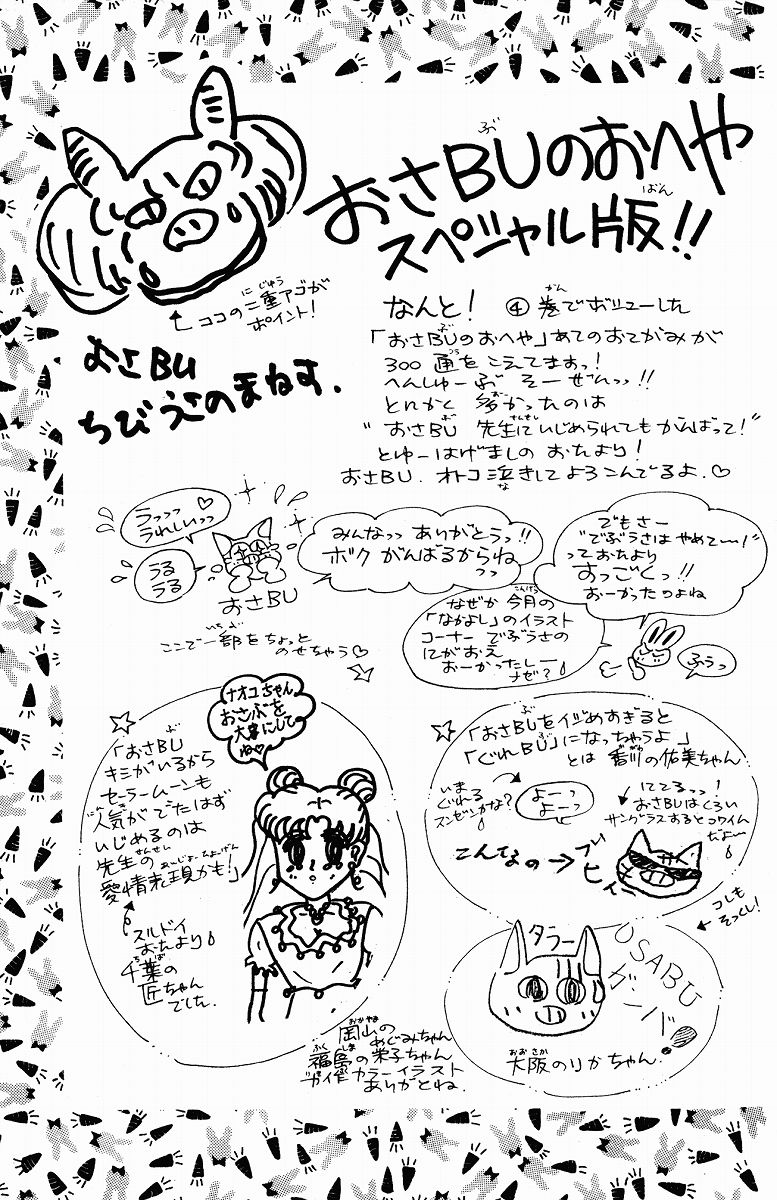 おさBUのおへや
スペシャル版!!
ココの二重アゴが
ポイント!
おさBU
ちびうさのまねす.
なんと! ④巻でボリューした
「おさBUのおへや」あてのおてがみが
300通をこえてますっ!
へんしゅーぶ そーぜんっっ!!
とにかく 多かったのは
"おさBU 先生にいじめられてもがんばって!"
とゆーはげましの おたより!
おさBU. オトコ泣きして よろこんでるよ.♡
うっっっ♡
うれしいっっ
うる
うる
おさBU
みんなっっ ありがとうっ!!
ボク がんばるからね
っっ
でもさー
"でぶうさは やめてー!"
っておたより
すっごくっ!!
おーかったのよね
なぜか 今月の
「なかよし」のイラスト
コーナー でぶうさの
にがおえ
おーかったしー
ナゼ?
ふうっ
ここで一部をちょっと
のせちゃう♡
ナオコちゃん
おさぶを
大事にして
ね♡
「おさBU
キミがいるから
セーラームーンも
人気がでたはず
いじめるのは
先生の
愛情表現かも!」
スルドイ
おたより
千葉の
匠ちゃん
でした.
「おさBUをイジめすぎると
「ぐれBU」になっちゃうよ」
とは 香川の佑美ちゃん
いま
ぐれる
スンゼンかな?
よーっ
よーっ
にてるっっ!
おさBUはくろい
サングラスするとコワイん
だよー
こんなの→
ブヒィー
コレも
そっくし!
タラー
OSABU
ガンバ
大阪のりかちゃん
岡山の めぐみちゃん
福島の栄子ちゃん
力作カラーイラスト
ありがとね.